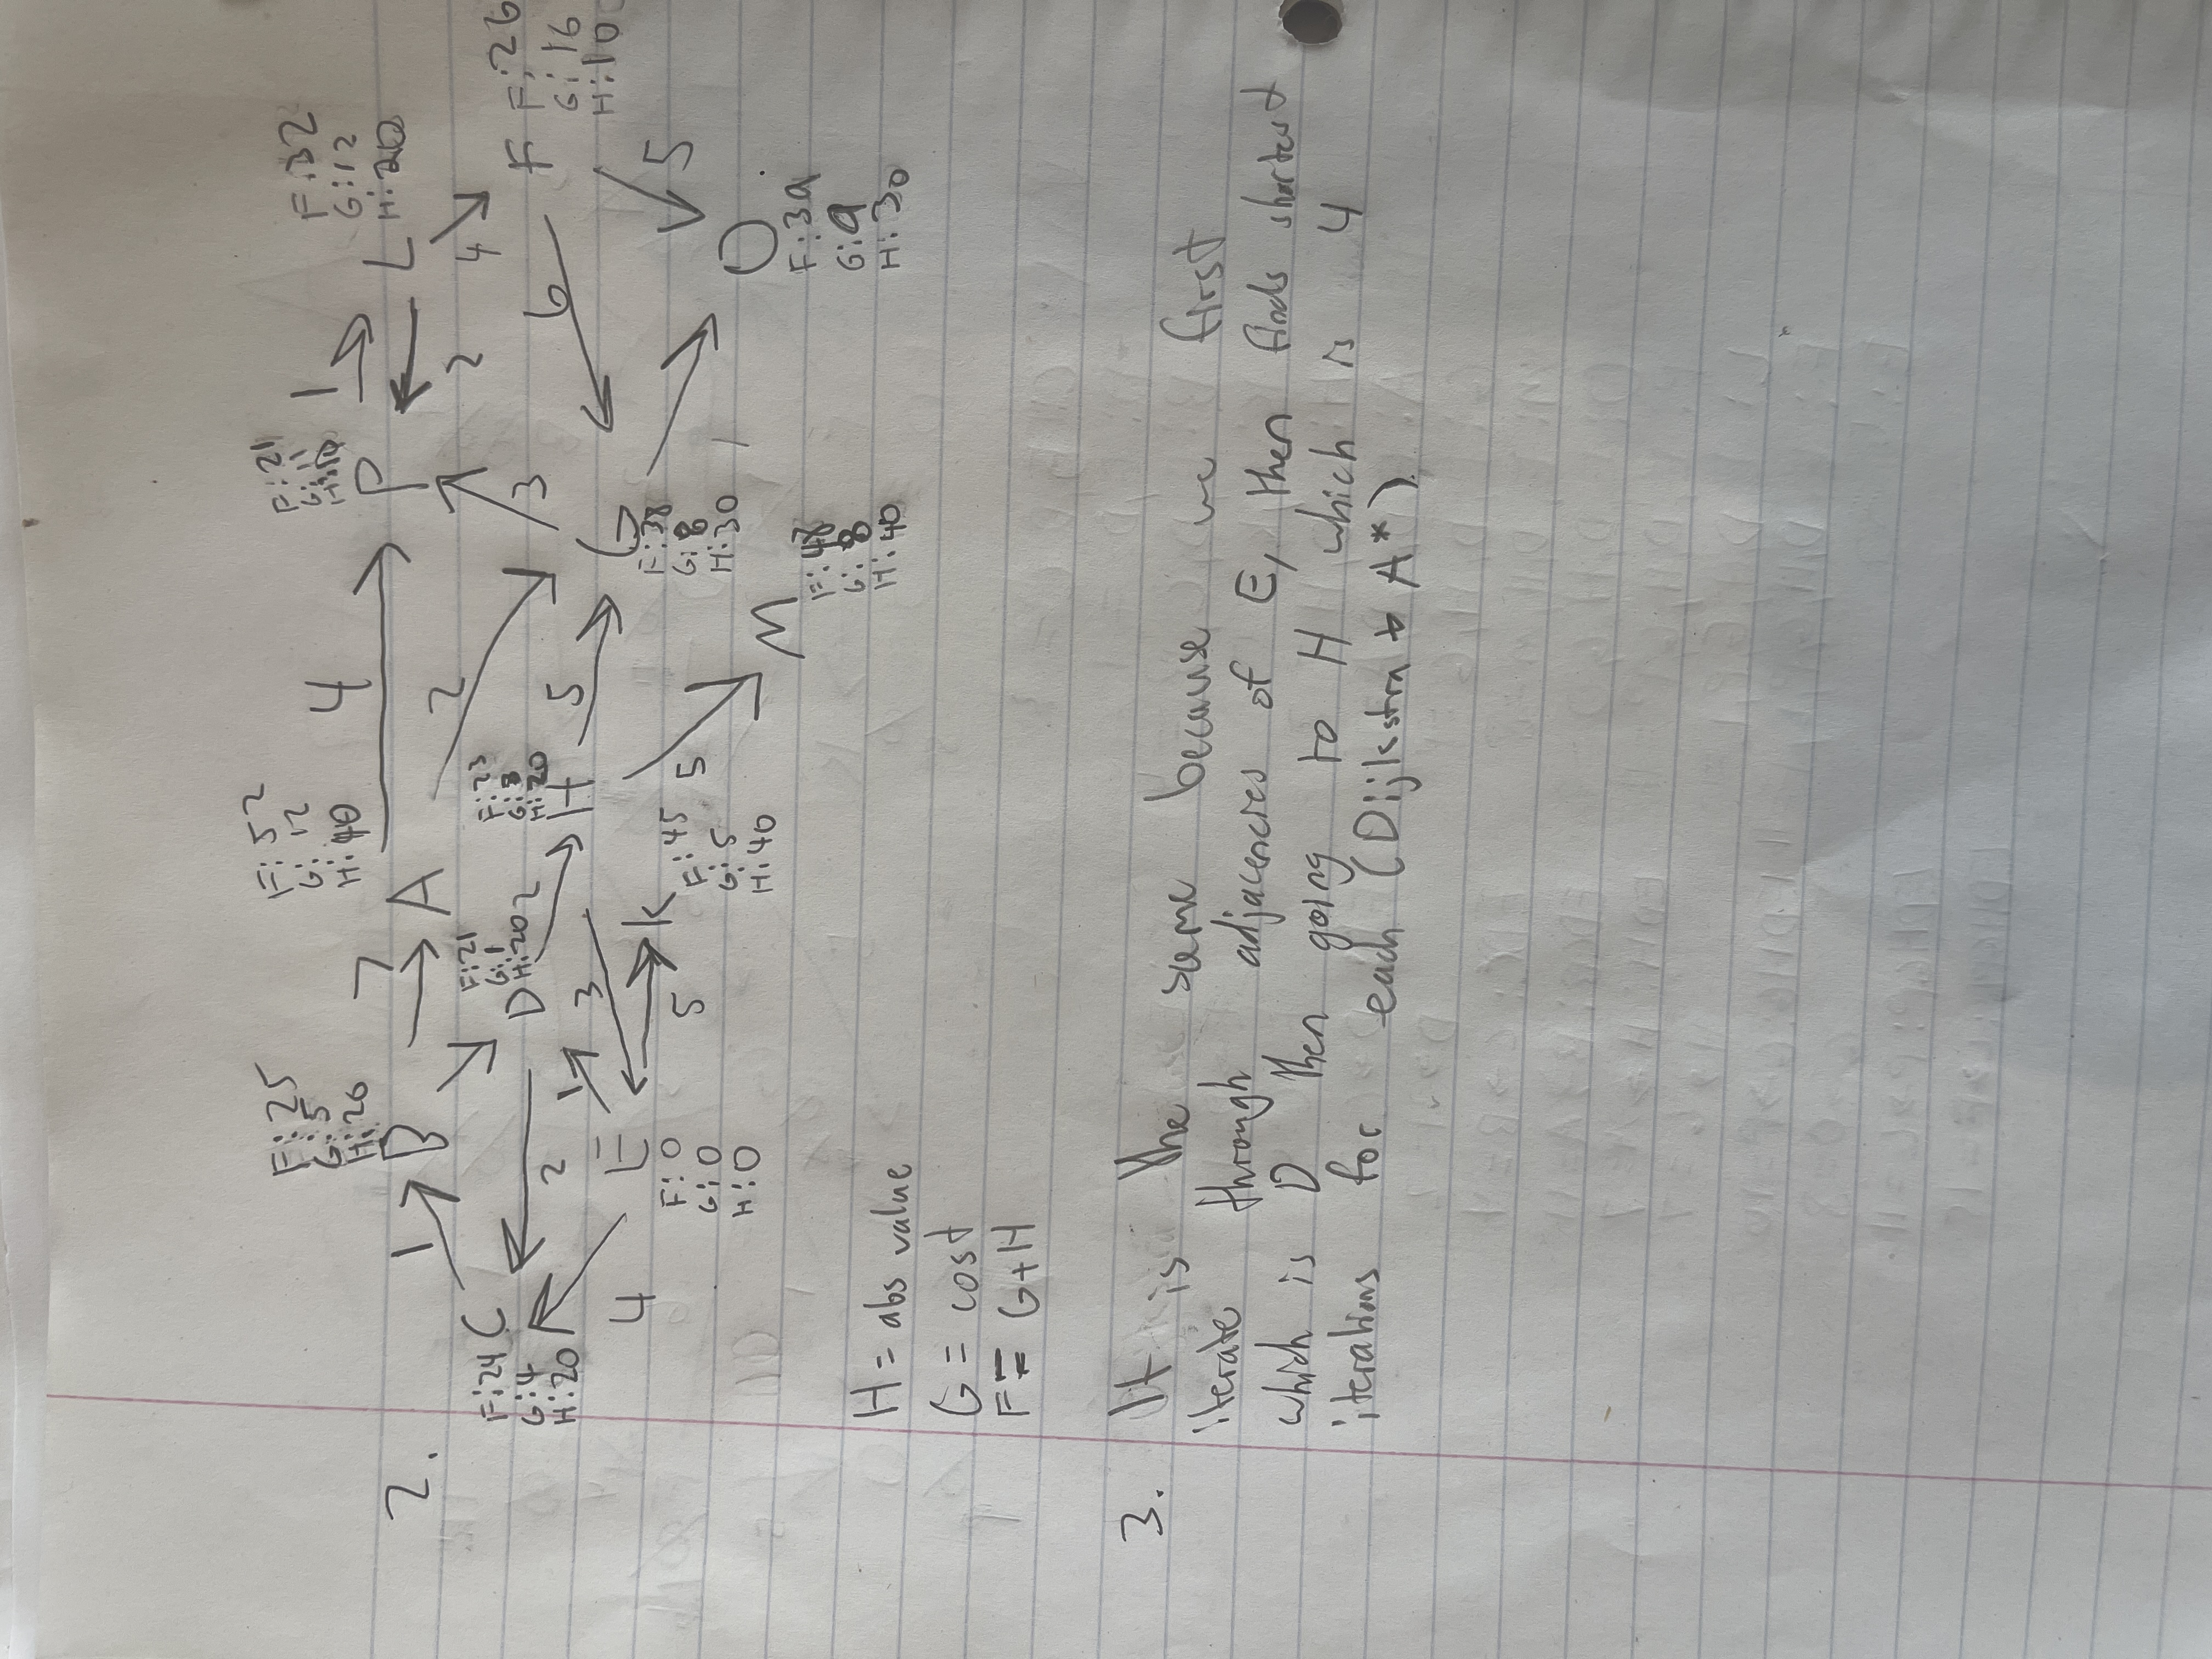 F: 25
G: 5
H: 20
F: 52
G: 12
H: 40
F: 21
G: 11
H: 10
F: 32
G: 12
H: 20
2.
1
B
7
A
4
P
1
L
2
2
4
F: 24
G: 4
H: 20
C
2
D
F: 21
G: 1
H: 20
2
F: 23
G: 3
H: 20
H
5
3
6
F
F: 26
G: 16
H: 10
4
E
1
3
F: 0
G: 0
H: 0
5
K
F: 45
G: 5
H: 40
5
G
F: 38
G: 8
H: 30
1
5
M
F: 48
G: 8
H: 40
O
F: 39
G: 9
H: 30
H = abs value
G = cost
F = G+H
3. It is the same because we first
iterate through adjacencies of E, then finds shortest
which is D then going to H which is 4
iterations for each (Dijkstra + A*).